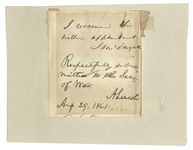 I recom the
within appointment
Respectfully sub-
mitted to the Sec.
of War.
A. Lincoln
Aug 29, 1861